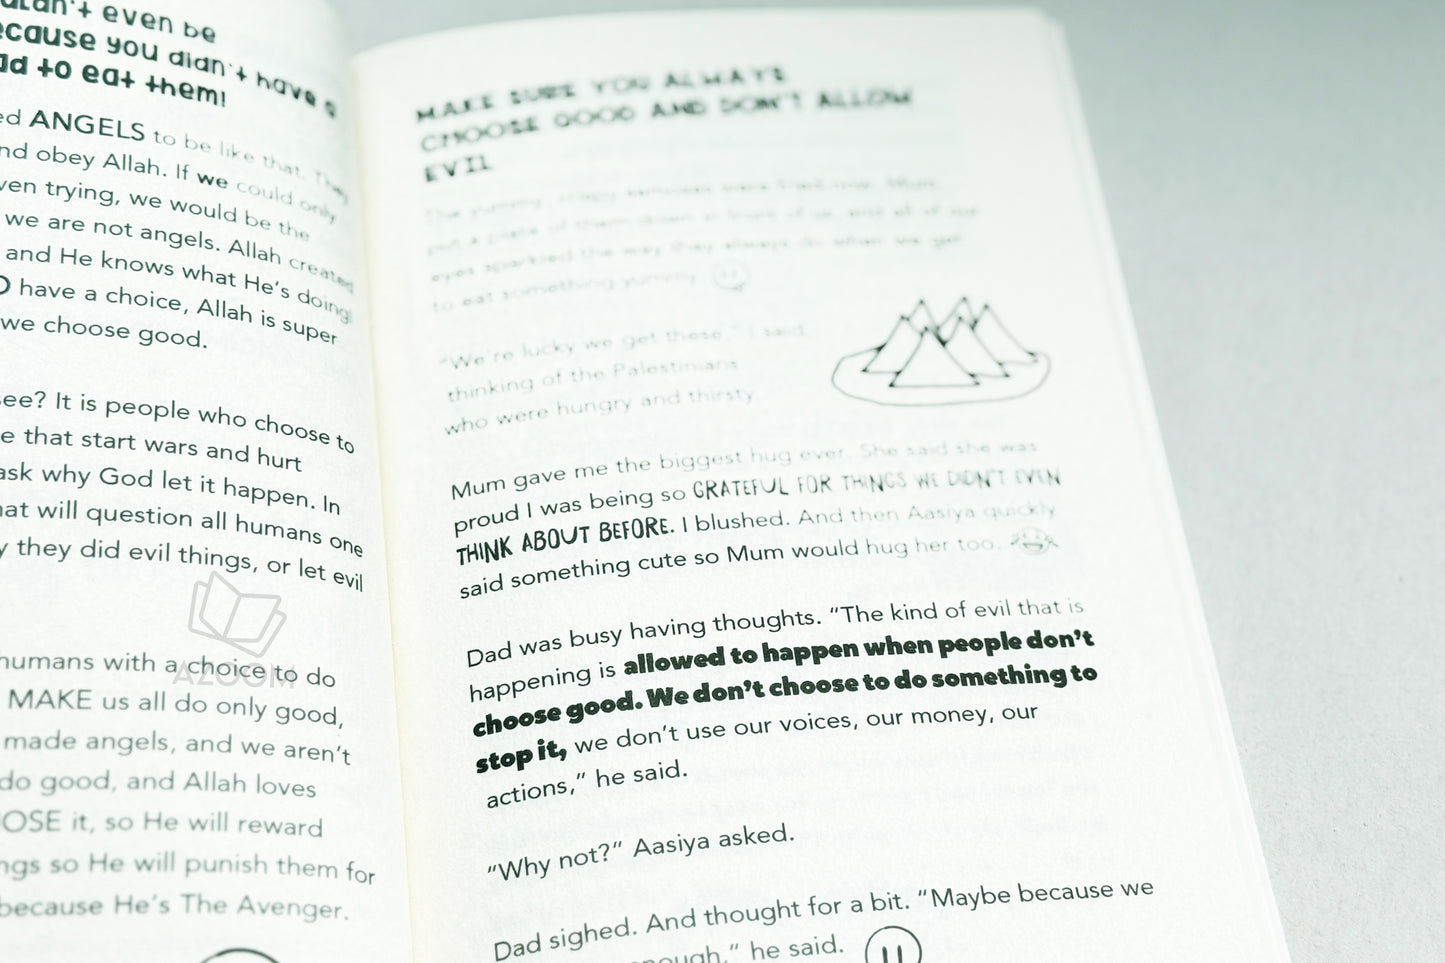 even be
because you didn't have a
to eat them!
ANGELS to be like that. They
obey Allah. If we could only
even trying, we would be the
we are not angels. Allah created
and He knows what He's doing!
have a choice, Allah is super
we choose good.
see? It is people who choose to
that start wars and hurt
ask why God let it happen. In
that will question all humans one
they did evil things, or let evil
humans with a choice to do
MAKE us all do only good,
made angels, and we aren't
do good, and Allah loves
it, so He will reward
so He will punish them for
because He's The Avenger.
AZOOM
MAKE SURE YOU ALWAYS
CHOOSE GOOD AND DON'T ALLOW
EVIL
The yummy, crispy samosas were fried now. Mum
put a plate of them down in front of us, and all of our
eyes sparkled the way they always do when we get
to eat something yummy.
"We're lucky we get these," I said,
thinking of the Palestinians
who were hungry and thirsty.
Mum gave me the biggest hug ever. She said she was
proud I was being so GRATEFUL FOR THINGS WE DIDN'T EVEN
THINK ABOUT BEFORE. I blushed. And then Aasiya quickly
said something cute so Mum would hug her too.
Dad was busy having thoughts. "The kind of evil that is
happening is allowed to happen when people don't
choose good. We don't choose to do something to
stop it, we don't use our voices, our money, our
actions," he said.
"Why not?" Aasiya asked.
Dad sighed. And thought for a bit. "Maybe because we
enough," he said.